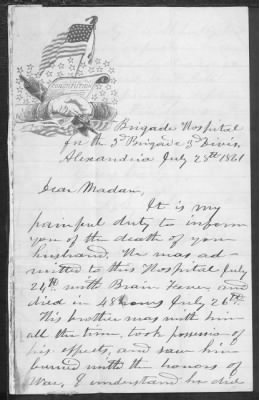 CONSTITUTION
Brigade Hospital
for the 3d Brigade 3d Divis.
Alexandria July 28th 1861
Dear Madam,
It is my
painful duty to inform
you of the death of your
husband. He was ad-
mitted to this Hospital July
24th with Brain Fever and
died in 48 hours July 26th
His brother was with him
all the time, took possession of
his effects, and saw him
buried with the honors of
War, I understand he did